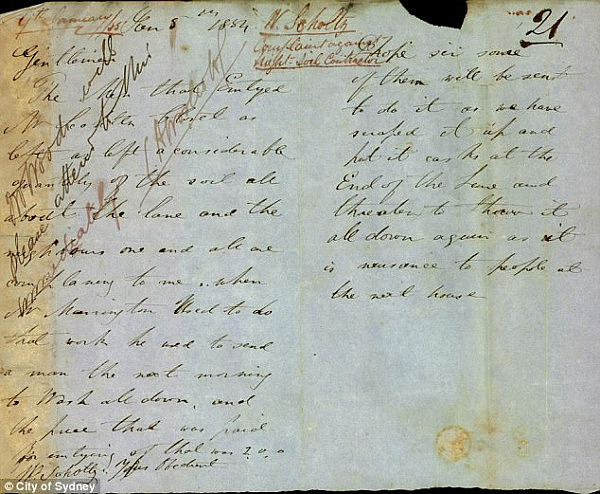 9th January /55
Jan 8th 1854
W. Scholtz
Complaint against
Night Soil Contractor
21
Gentlemen
The that Emtyed
Mr as
left as left a considerable
quantity of the soil all
about the lane and the
neighbours one and all are
complaning to me. when
Mr Marrington Used to do
that work he used to send
a man the next morning
to Wash all down, and
the price that was paid
for emtying of that was 2,0,0
W. Scholtz. Yours Obedient
will
please attend to this
immediately
I hope sir some
of them will be sent
to do it as we have
scraped it up and
put it casks at the
End of the Lane and
threaten to throw it
all down again as it
is neusance to people at
the next house
© City of Sydney